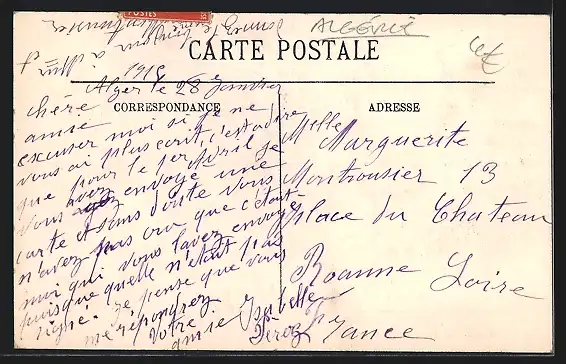 POSTES
ALGÉRIE
4€
CARTE POSTALE
CORRESPONDANCE
ADRESSE
1919
Alger le 28 Janvier
chère
amie
excuser moi si je ne
vous ai plus ecrit, c'est adire
que pour le 1er Avril je
vous avez envoyé une
carte et sans doute vous
n'avez pas cru que c'était
moi qui vous l'avez envoyé
puisque quelle n'était pas
signé. Je pense que vous
me répondrez
Votre
amie Isabelle
Perez
Melle Marguerite
Montrousier 13
place du Chateau
Roanne Loire
France